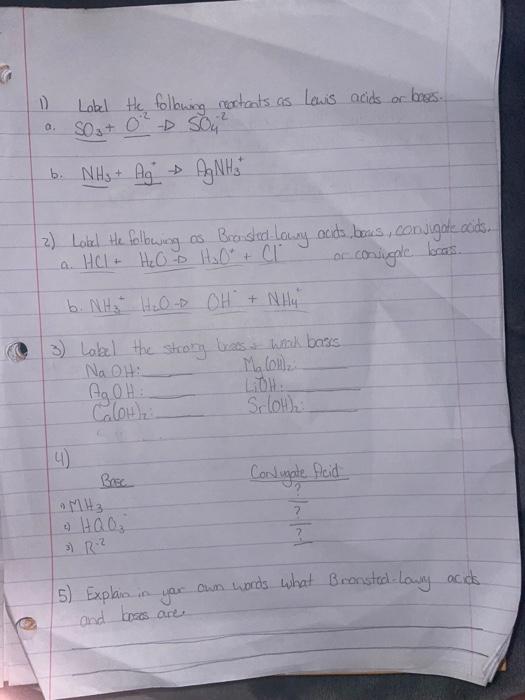 1) Label the following reactants as Lewis acids or bases.
a. SO₃ + O⁻² → SO₄⁻²
b. NH₃ + Ag⁺ → AgNH₃⁺
2) Label the following as Bronsted-Lowry acids, bases, conjugate acids,
a. HCl + H₂O → H₃O⁺ + Cl⁻ or conjugate bases.
b. NH₃⁺ H₂O → OH⁻ + NH₄⁺
3) Label the strong bases & weak bases
NaOH: Mg(OH)₂:
AgOH: LiOH:
Ca(OH)₂: Sr(OH)₂:
4)
Base Conjugate Acid
1) MH₃ ?
2) HQO₃⁻ ?
3) R⁻² ?
5) Explain in your own words what Bronsted-Lowry acids
and bases are.